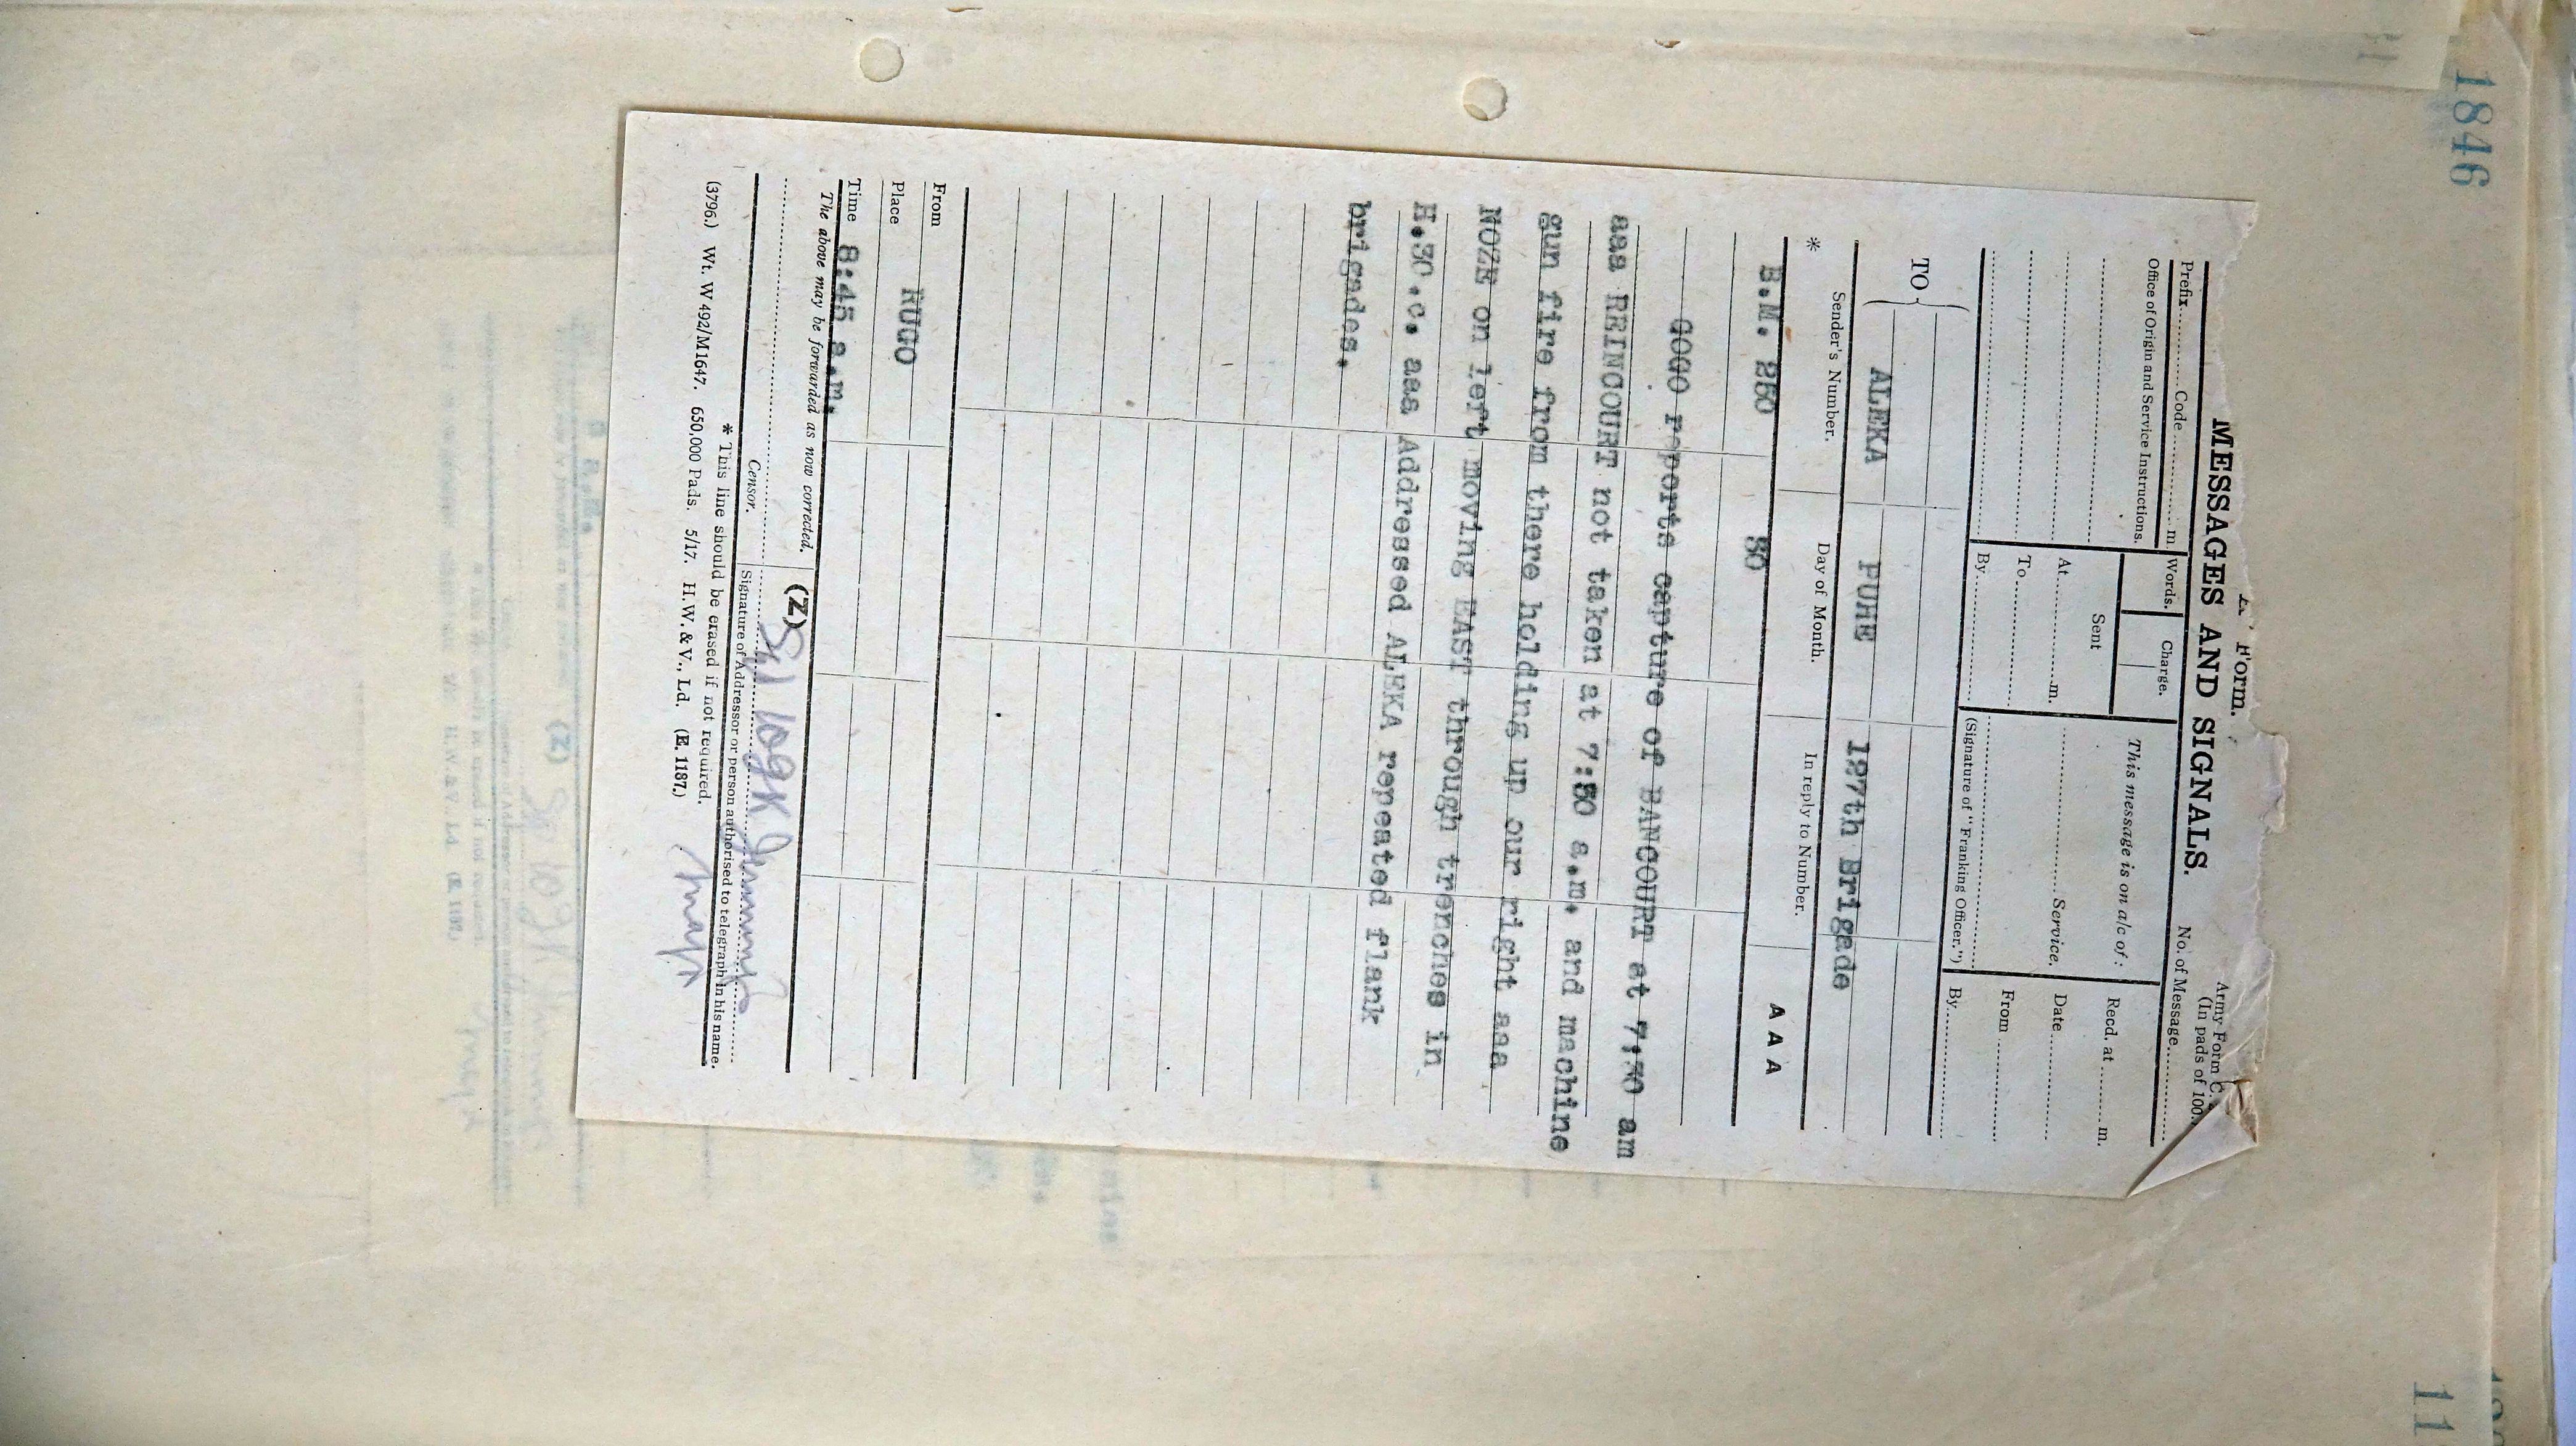 1846
"A" Form.
Army Form C.
MESSAGES AND SIGNALS.
(In pads of 100.)
No. of Message
Prefix Code m.
Words.
Charge.
This message is on a/c of:
Recd. at m.
Office of Origin and Service Instructions.
Sent
At m.
Service.
Date
To
From
By
(Signature of "Franking Officer.")
By
TO
ALEKA PUHE 127th Brigade
* Sender's Number. Day of Month. In reply to Number. A A A
B.M. 250 30
GOGO reports capture of BANCOURT at 7:30 am
aaa REINCOURT not taken at 7:50 a.m. and machine
gun fire from there holding up our right aaa
NOZE on left moving EAST through trenches in
H.30.c. aaa Addressed ALEKA repeated flank
brigades.
From
Place RUGO
Time 8:45 a.m.
The above may be forwarded as now corrected. (Z)
Censor. Signature of Addressor or person authorised to telegraph in his name.
* This line should be erased if not required.
(3796.) Wt. W 492/M1647. 650,000 Pads. 5/17. H.W. & V., Ld. (E. 1187.)
Major
11